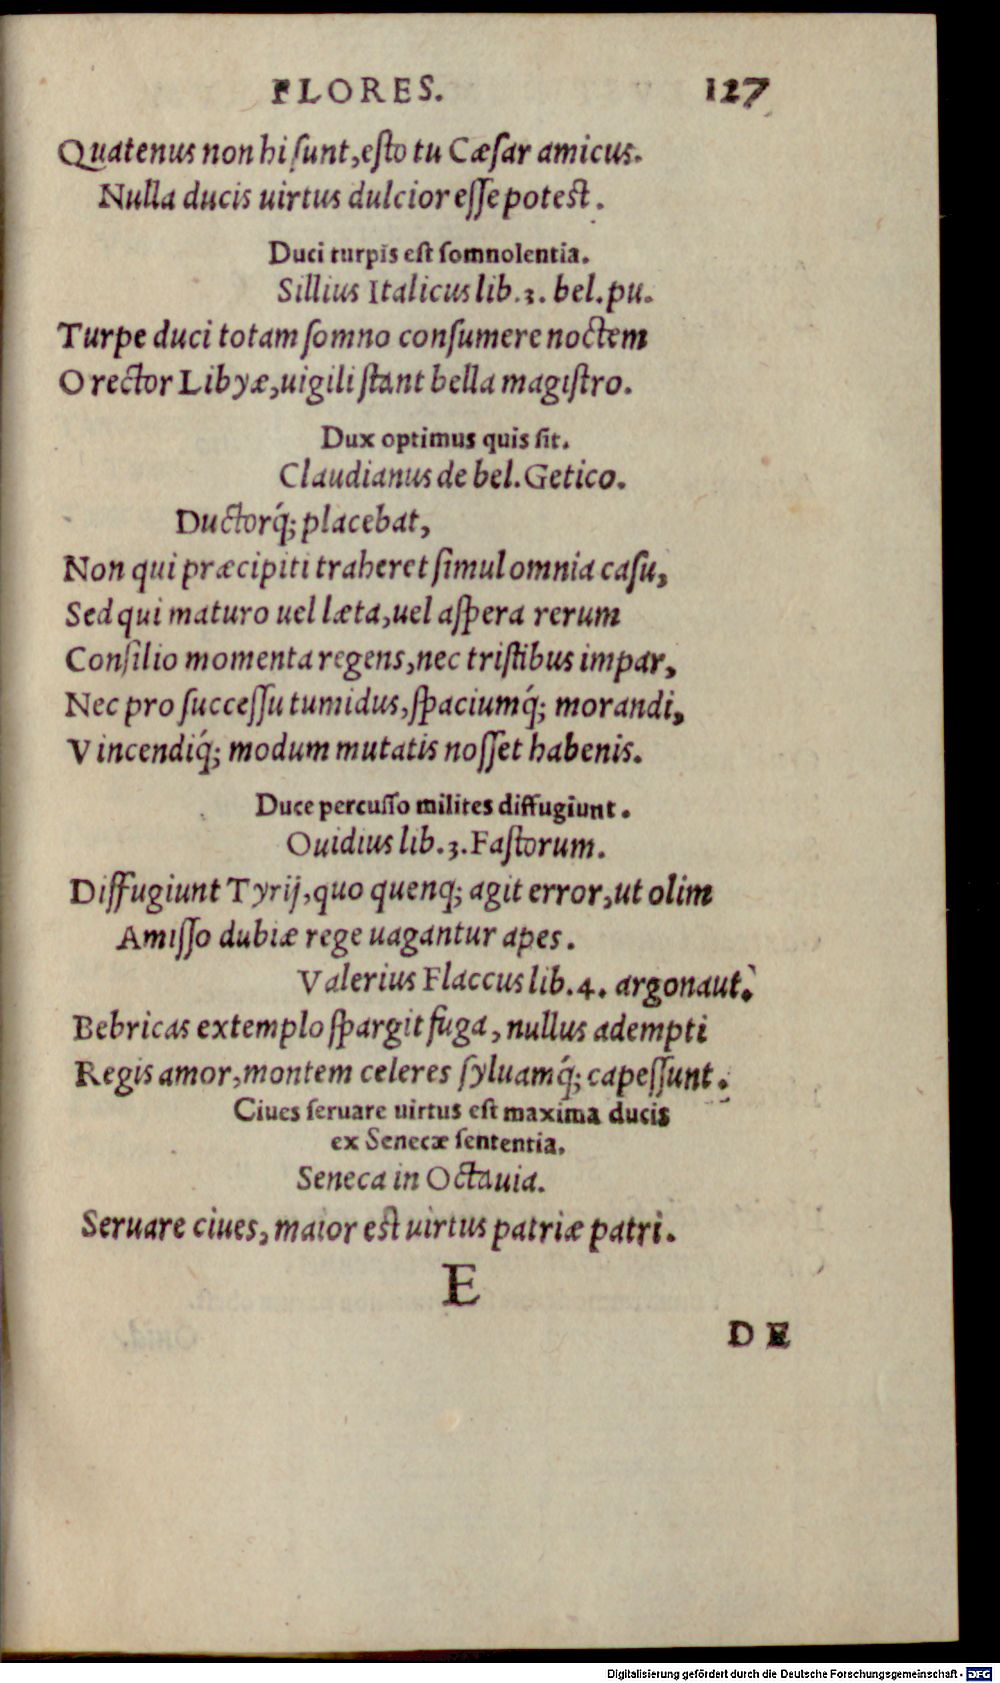 FLORES. 127
Quatenus non hi ſunt, eſto tu Cæſar amicus.
Nulla ducis uirtus dulcior eſſe potest.
Duci turpis eſt ſomnolentia.
Sillius Italicus lib. 3. bel. pu.
Turpe duci totam ſomno conſumere noctem
O rector Libyæ, uigili ſtant bella magiſtro.
Dux optimus quis ſit.
Claudianus de bel. Getico.
Ductorq́; placebat,
Non qui præcipiti traheret ſimul omnia caſu,
Sed qui maturo uel læta, uel aſpera rerum
Conſilio momenta regens, nec triſtibus impar,
Nec pro ſucceſſu tumidus, ſpaciumq́; morandi,
Vincendiq́; modum mutatis noſſet habenis.
Duce percuſſo milites diffugiunt.
Ouidius lib. 3. Faſtorum.
Diffugiunt Tyrij, quo quenq; agit error, ut olim
Amiſſo dubiæ rege uagantur apes.
Valerius Flaccus lib. 4. argonaut.
Bebricas extemplo ſpargit fuga, nullus adempti
Regis amor, montem celeres ſyluamq́; capeſſunt.
Ciues ſeruare uirtus eſt maxima ducis
ex Senecæ ſententia.
Seneca in Octauia.
Seruare ciues, maior est uirtus patriæ patri.
E
DE
Digitalisierung gefördert durch die Deutsche Forschungsgemeinschaft - DFG